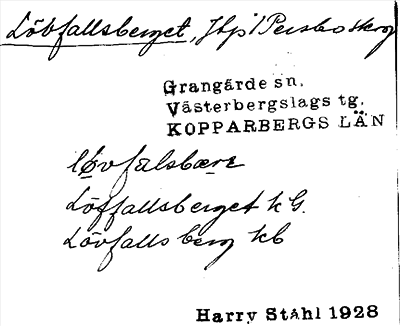 Lövfallsberget, Jtp i Persbo skog
Grangärde sn.
Västerbergslags tg.
KOPPARBERGS LÄN
løvfalsbære
Löffallsberget k G.
Lövfalls berg kb
Harry Ståhl 1928